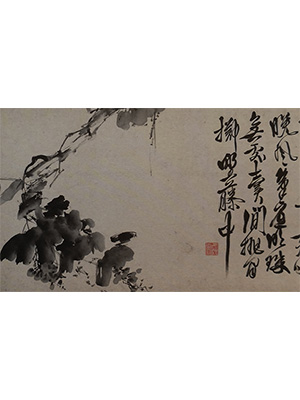 晚風筆底明珠
無處賣閒拋閒
擲野藤中